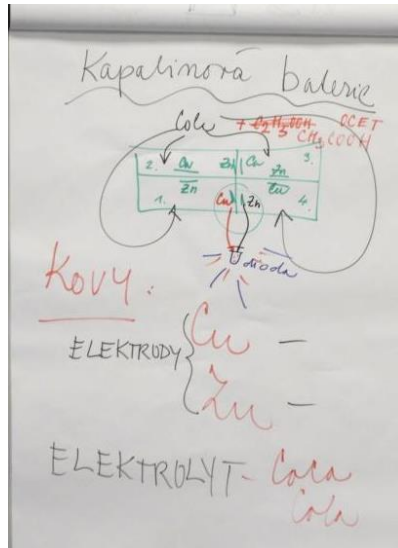 Kapalinová baterie
Cola + C2H5OOH OCET
CH3COOH
2. Cu Zn Cu Zn 3.
1. Zn Cu Zn Cu 4.
dioda
KOVY:
ELEKTRODY Cu –
Zn –
ELEKTROLYT - Coca
Cola